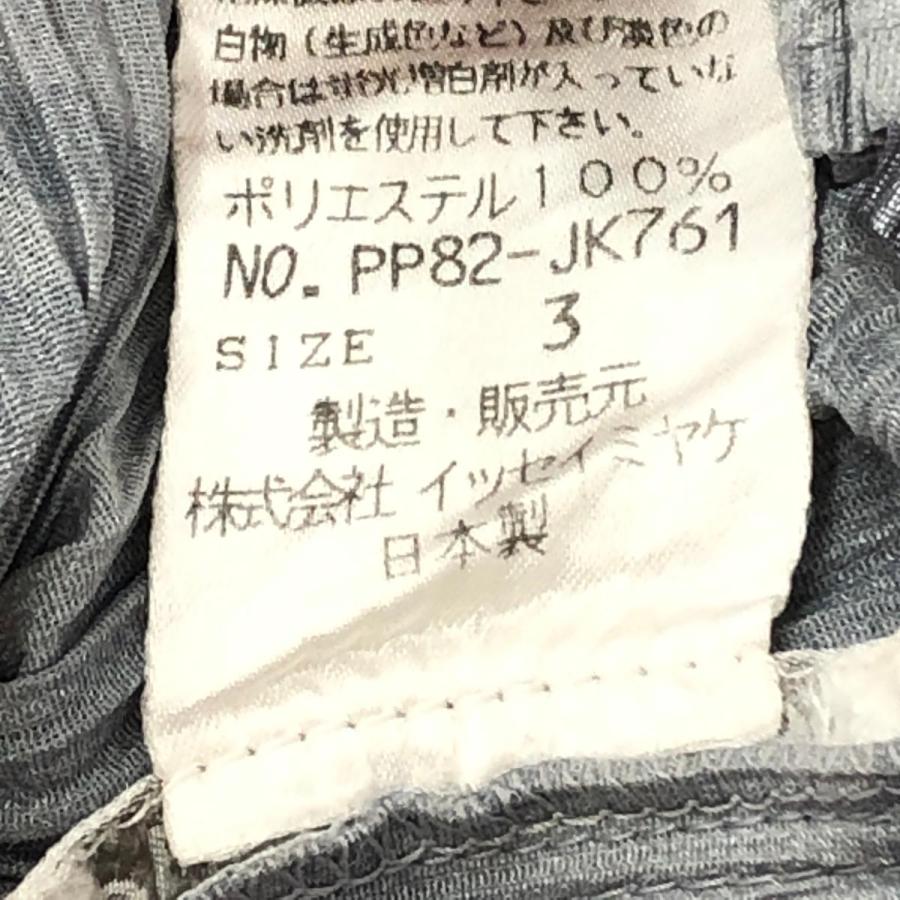 白物（生成色など）及び淡色の
場合は蛍光増白剤が入っていな
い洗剤を使用して下さい。
ポリエステル100%
NO. PP82-JK761
SIZE 3
製造・販売元
株式会社 イッセイミヤケ
日本製